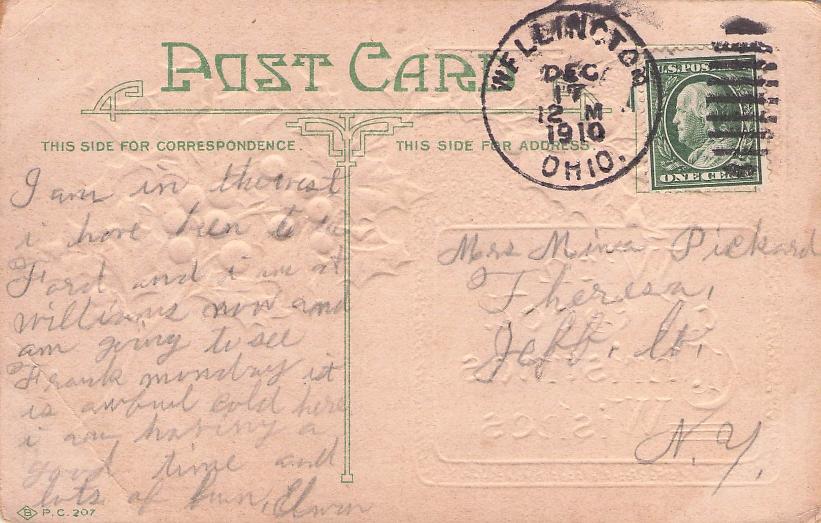 POST CARD
THIS SIDE FOR CORRESPONDENCE.
THIS SIDE FOR ADDRESS.
WELLINGTON
DEC
17
12 M
1910
OHIO.
U.S. POS
ONE CE
I am in the west
i have been to
Ford and i am at
williams now and
am going to see
Frank monday it
is awful cold here
i am having a
good time and
lots of fun, Elwin
Mrs Mina Pickard
Theresa,
Jeff. Co.
N.Y.
B P.C. 207